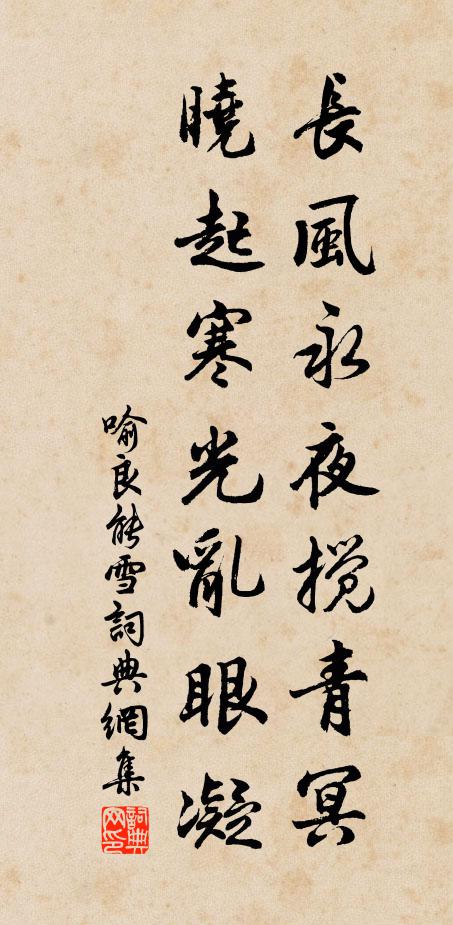 長風永夜搅青冥
曉起寒光亂眼凝
喻良能雪詞典網集
詞典网印